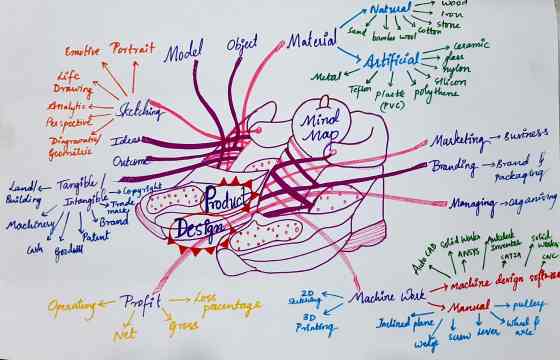 Emotive
Portrait
Model
Object
Material
Natural
Wood
Iron
Stone
Cotton
Wool
bamboo
Sand
Artificial
Ceramic
glass
nylon
Silicon
polythene
Plastic
(PVC)
Teflon
Metal
Life
Drawing
Analytic
Perspective
Diagrammatic/
Geometric
Sketching
Mind
Map
Ideas
Outcome
Marketing
Business
Branding
Brand &
packaging
Managing
organising
Tangible/
Intangible
Land/
Building
Machinery
Cash
Goodwill
Patent
Brand
Trade
mark
Copyright
Product
Design
Profit
Operating
Net
Gross
Loss
percentage
Machine Work
2D
Sketching
3D
Printing
Auto CAD
Solid Works
ANSYS
Autodesk
Inventor
CATIA
Solid
Works
CNC
Machine design software
Manual
pulley
Wheel &
axle
Lever
Screw
Wedge
Inclined plane